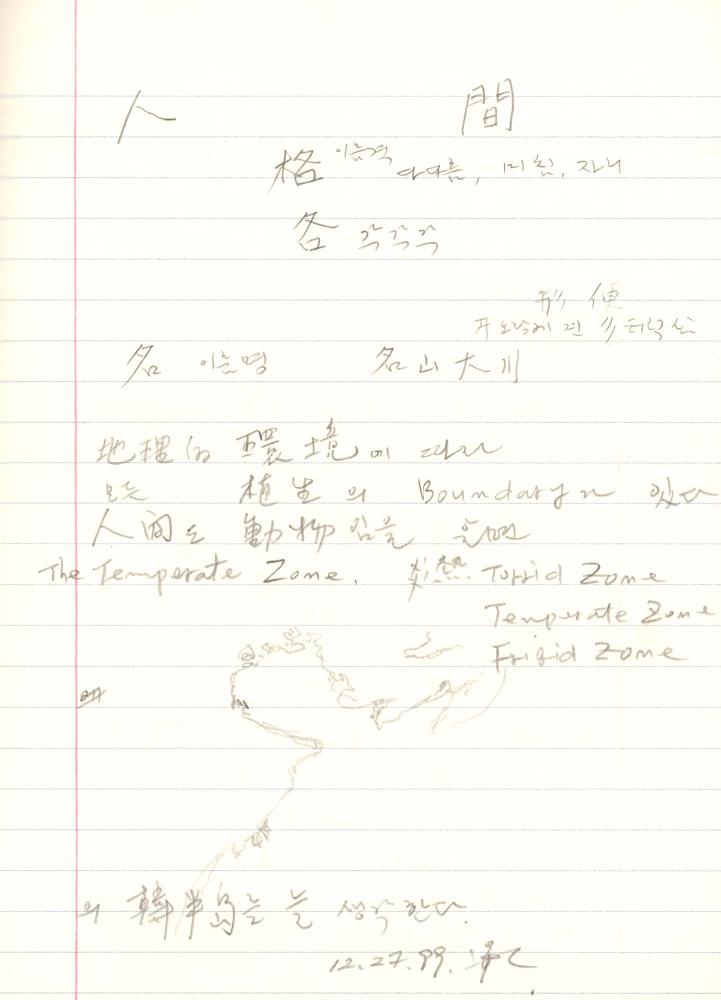 人 間
格 이를격 다다름, 미침, 자리
各 각각각
形便
名 이름명 名山大川
地理的 環境에 따라
모든 植生의 Boundary가 있다
人间도 動物임을
The Temperate Zone. 炎熱 Torrid Zone
Temperate Zone
Frigid Zone
왜
의 韓半島를 늘 생각한다.
12.27.99.